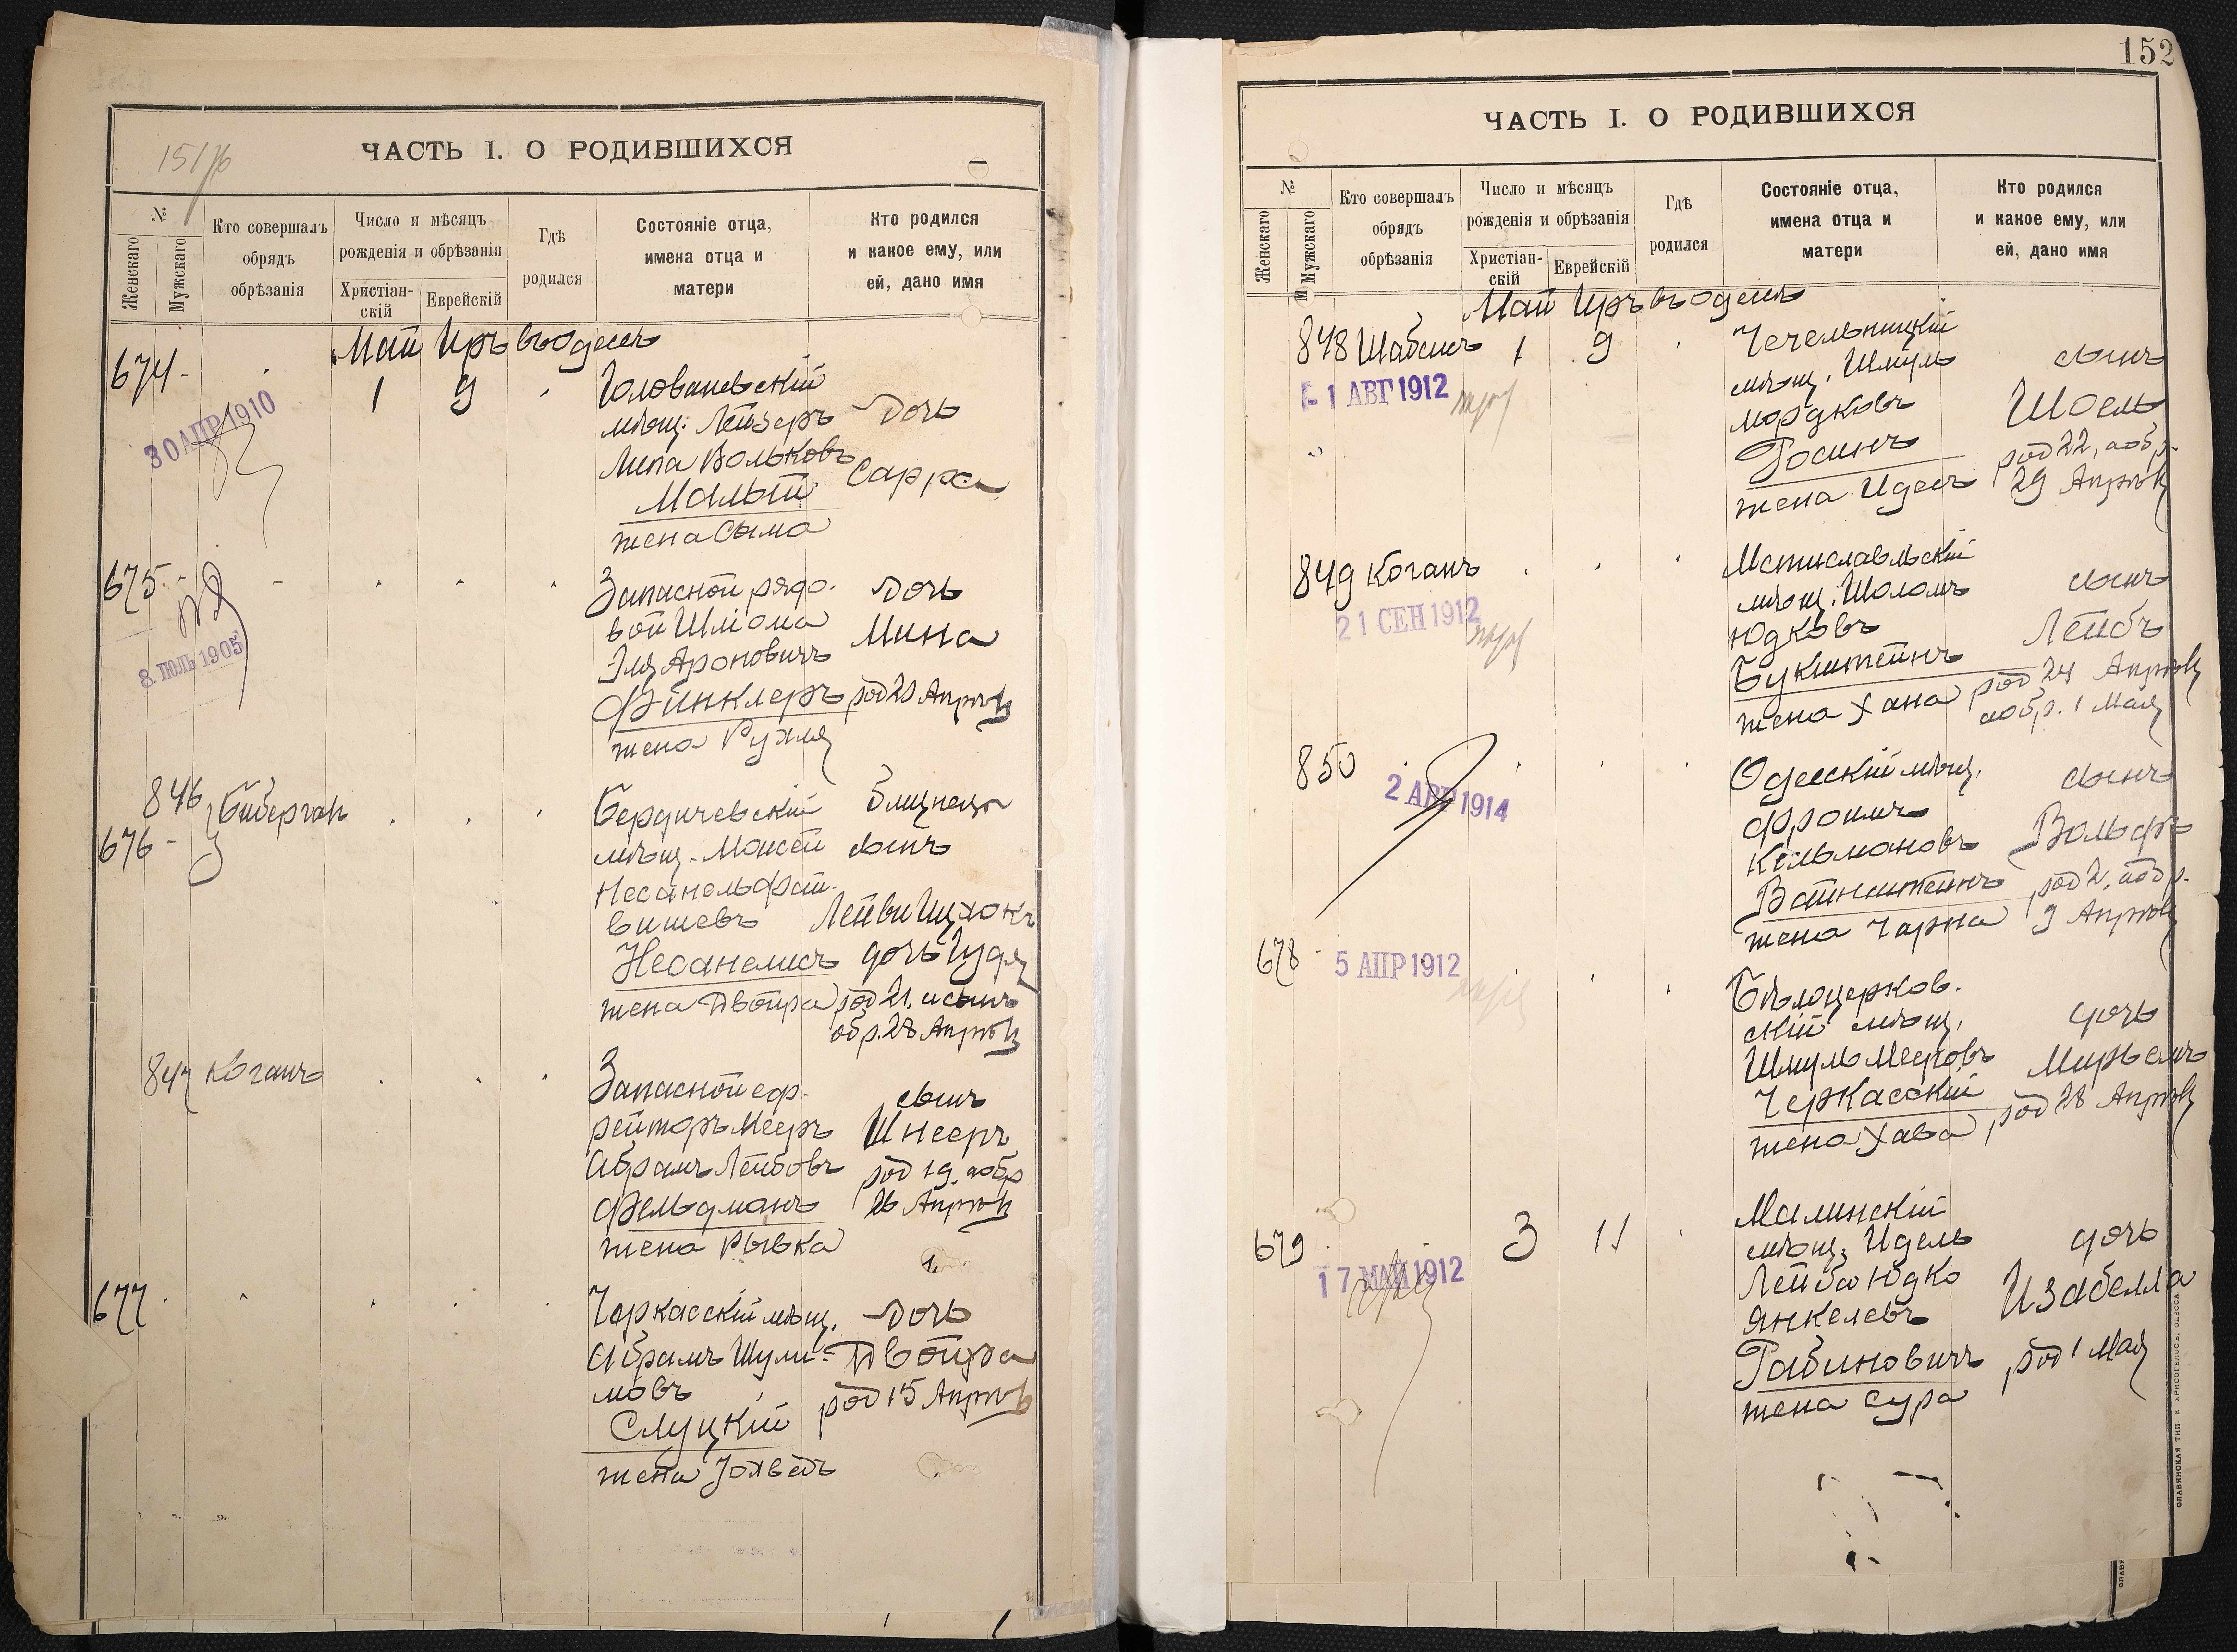 151/76
ЧАСТЬ I. О РОДИВШИХСЯ
№
Женскаго
Мужскаго
Кто совершалъ
обрядъ
обрѣзанія
Число и мѣсяцъ
рожденія и обрѣзанія
Христіан-
скій
Еврейскій
Гдѣ
родился
Состояніе отца,
имена отца и
матери
Кто родился
и какое ему, или
ей, дано имя
Май Иръ въ Одессѣ
674 - 1 9
30 АПР 1910
Голованевскій
мѣщ. Лейзеръ Дочь
Липа Вольковъ
Малый Сарра
жена Сыма
675 - Запасной рядо- Дочь
вой Шліома Мина
Эля Ароновичъ
Финклеръ род 20 Апрѣля
жена Рухля
8 ІЮЛЬ 1905
846 Биберган Бердичевскій близнецы
676 - мѣщ. Моисей сынъ
Несанель Фай-
вишевъ Лейви Ицхокъ
Несанелисъ дочь Гудя
жена Двойра род 21, и сынъ
обр. 28 Апрѣля
847 Коганъ Запасной еф- сынъ
рейторъ Мееръ Шнееръ
Абрамъ Лейбовъ род 19, и обр
Фельдманъ 26 Апрѣля
жена Рывка
677 Черкасскій мѣщ. Дочь
Абрамъ Шули- Двойра
мовъ род 15 Апрѣля
Слуцкій
жена Іохведъ
152
ЧАСТЬ I. О РОДИВШИХСЯ
№
Женскаго
Мужскаго
Кто совершалъ
обрядъ
обрѣзанія
Число и мѣсяцъ
рожденія и обрѣзанія
Христіан-
скій
Еврейскій
Гдѣ
родился
Состояніе отца,
имена отца и
матери
Кто родился
и какое ему, или
ей, дано имя
Май Иръ въ Одессѣ
848 Шабсисъ 1 9 Чечельницкій
1 АВГ 1912
мѣщ. Шмуль сынъ
Мордковъ Шоель
Росинъ род 22, и обр.
жена Идесъ 29 Апрѣля
849 Коганъ Мстиславльскій
21 СЕН 1912
мѣщ. Шоломъ сынъ
Юдковъ Лейбъ
Букштейнъ род 24 Апрѣля
жена Хана и обр. 1 Мая
850 Одесскій мѣщ. сынъ
1914
Фроимъ
Кельмановъ Вольфъ
Вайнштейнъ род 2, и обр.
жена Чарна 9 Апрѣля
678 5 АПР 1912
Бѣлоцерков-
скій мѣщ. дочь
Шмуль Мееровъ Мирьемъ
Черкасскій род 28 Апрѣля
жена Хава
679 3 11 Малинскій
17 МАЙ 1912
мѣщ. Идель дочь
Лейба Юдко Изабелла
Янкелевъ
Рабиновичъ род 1 Мая
жена Сура